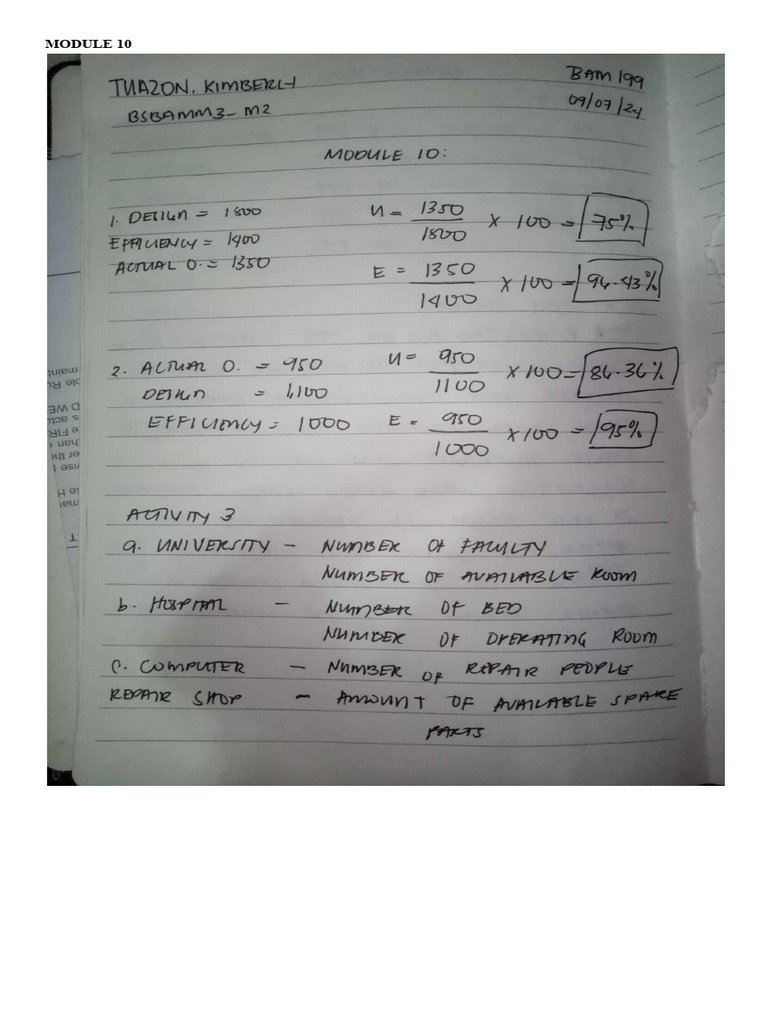 MODULE 10
TUAZON, KIMBERLY
BAM 199
BSBAMM3-M2
09/07/24
MODULE 10:
1. DESIGN = 1800
U = 1350/1800 X 100 = 75%
EFFICIENCY = 1400
ACTUAL O. = 1350
E = 1350/1400 X 100 = 96.43%
2. ACTUAL O. = 950
U = 950/1100 X 100 = 86.36%
DESIGN = 1,100
EFFICIENCY = 1000
E = 950/1000 X 100 = 95%
ACTIVITY 3
a. UNIVERSITY - NUMBER OF FACULTY
NUMBER OF AVAILABLE ROOM
b. HOSPITAL - NUMBER OF BED
NUMBER OF OPERATING ROOM
C. COMPUTER - NUMBER OF REPAIR PEOPLE
REPAIR SHOP - AMOUNT OF AVAILABLE SPARE
PARTS